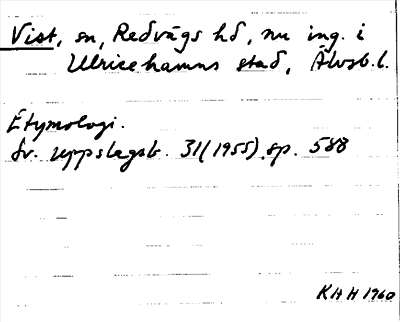 Vist, sn, Redvägs hd, nu ing. i
Ulricehamns stad, Älvsb. l.
Etymologi.
Sv. uppslagsb. 31 (1955) sp. 588
KHH 1960